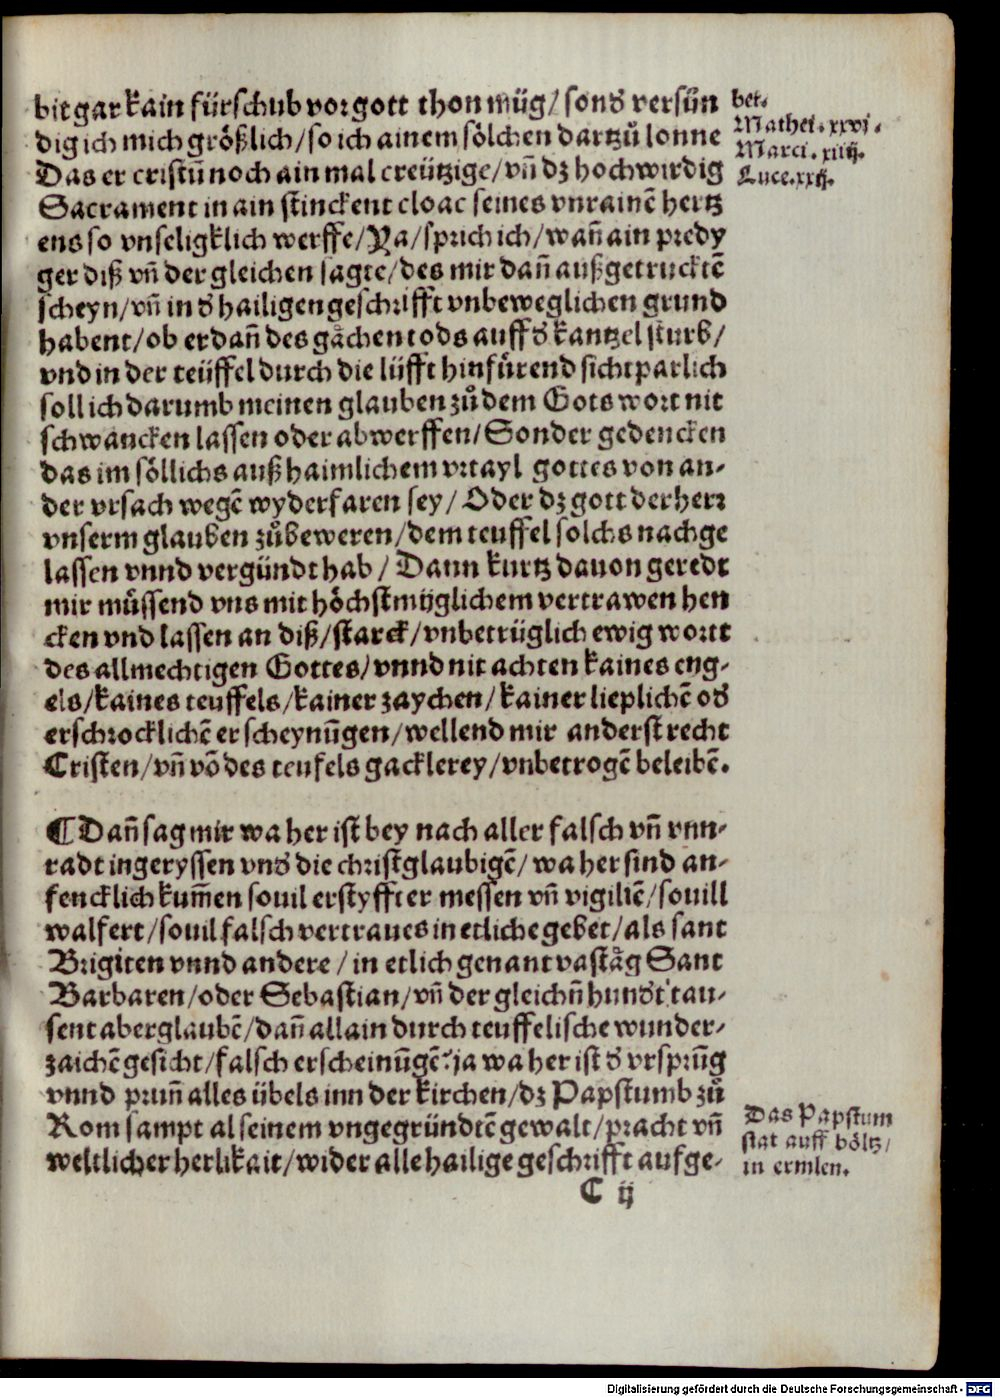 bit gar kain fürschub vor gott thon müg/ sonđ versün
dig ich mich größlich/ so ich ainem sölchen dartzů lonne
Das er cristū noch ain mal creützige/ vñ dz hochwirdig
Sacrament in ain stinckent cloac seines vnrainē hertz
ens so vnseligklich werffe/ Ya/ sprich ich/ wañ ain predy
ger diß vñ der gleichen sagte/ des mir dañ außgetrucktē
scheyn/ vñ in đ hailigen geschrifft vnbeweglichen grund
habent/ ob er dañ des gächen tods auff đ kantzel sturb/
vnd in der teüffel durch die lüfft hinfürend sichtparlich
soll ich darumb meinen glauben zů dem Gots wort nit
schwancken lassen oder abwerffen/ Sonder gedencken
das im söllichs auß haimlichem vrtayl gottes von an-
der vrsach wegē wyderfaren sey/ Oder dz gott der herr
vnserm glauben zůbeweren/ dem teuffel solchs nachge
lassen vnnd vergündt hab/ Dann kurtz dauon geredt
mir müssend vns mit höchstmüglichem vertrawen hen
cken vnd lassen an diß/ starck/ vnbetrüglich ewig wortt
des allmechtigen Gottes/ vnnd nit achten kaines eng-
els/ kaines teuffels/ kainer zaychen/ kainer lieplichē ođ
erschrocklichē erscheynūgen/ wellend mir anderst recht
Cristen/ vñ vō des teufels gacklerey/ vnbetrogē beleibē.
¶ Dañ sag mir wa her ist bey nach aller falsch vñ vnn-
radt ingeryssen vnđ die christglaubigē/ wa her sind an-
fencklich kum̄en souil erstyffter messen vñ vigiliē/ souill
walfert/ souil falsch vertraues in etliche gebet/ als sant
Brigiten vnnd andere/ in etlich genant vastäg Sant
Barbaren/ oder Sebastian/ vñ der gleichñ hunđt tau-
sent aberglaubē/ dañ allain durch teuffelische wunder-
zaichē gesicht/ falsch erscheinūgē? ja wa her ist đ vrsprūg
vnnd prun̄ alles übels inn der kirchen/ dz Papstumb zů
Rom sampt al seinem vngegründtē gewalt/ pracht vñ
weltlicher herlikait/ wider alle hailige geschrifft aufge-
C ij
ber.
Mathei. xxvi.
Marci. xiiij.
Luce. xxij.
Das Papstum
stat auff höltz/
in ermlen.
Digitalisierung gefördert durch die Deutsche Forschungsgemeinschaft - DFG